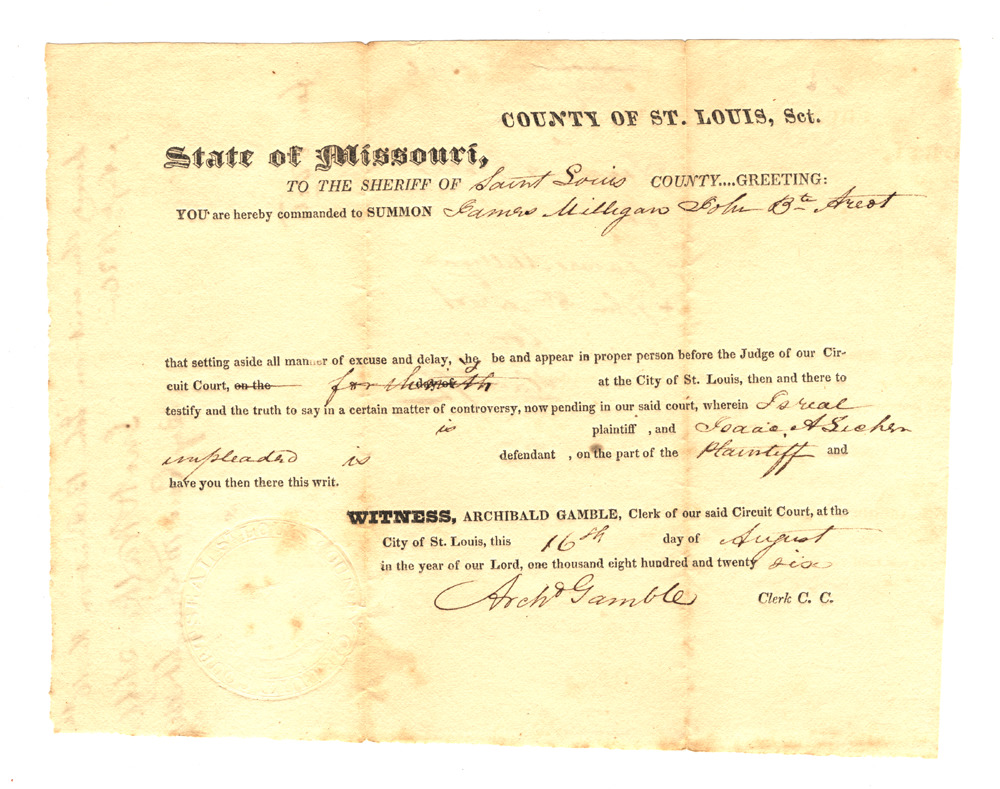 COUNTY OF ST. LOUIS, Sct.
State of Missouri,
TO THE SHERIFF OF Saint Louis COUNTY....GREETING:
YOU are hereby commanded to SUMMON James Milligan John Bte Arcot
that setting aside all manner of excuse and delay, they be and appear in proper person before the Judge of our Cir-
cuit Court, on the forthwith day of at the City of St. Louis, then and there to
testify and the truth to say in a certain matter of controversy, now pending in our said court, wherein Isreal
is plaintiff , and Isaac A Letcher
impleaded is defendant , on the part of the Plaintiff and
have you then there this writ.
WITNESS, ARCHIBALD GAMBLE, Clerk of our said Circuit Court, at the
City of St. Louis, this 16th day of August
in the year of our Lord, one thousand eight hundred and twenty six
Archd Gamble Clerk C. C.